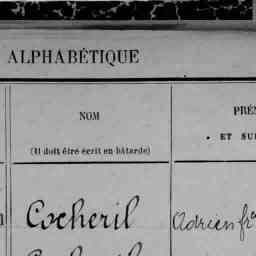 ALPHABÉTIQUE
NOM
(Il doit être écrit en bâtarde)
PRÉ
• ET SU
Cocheril Adrien fr